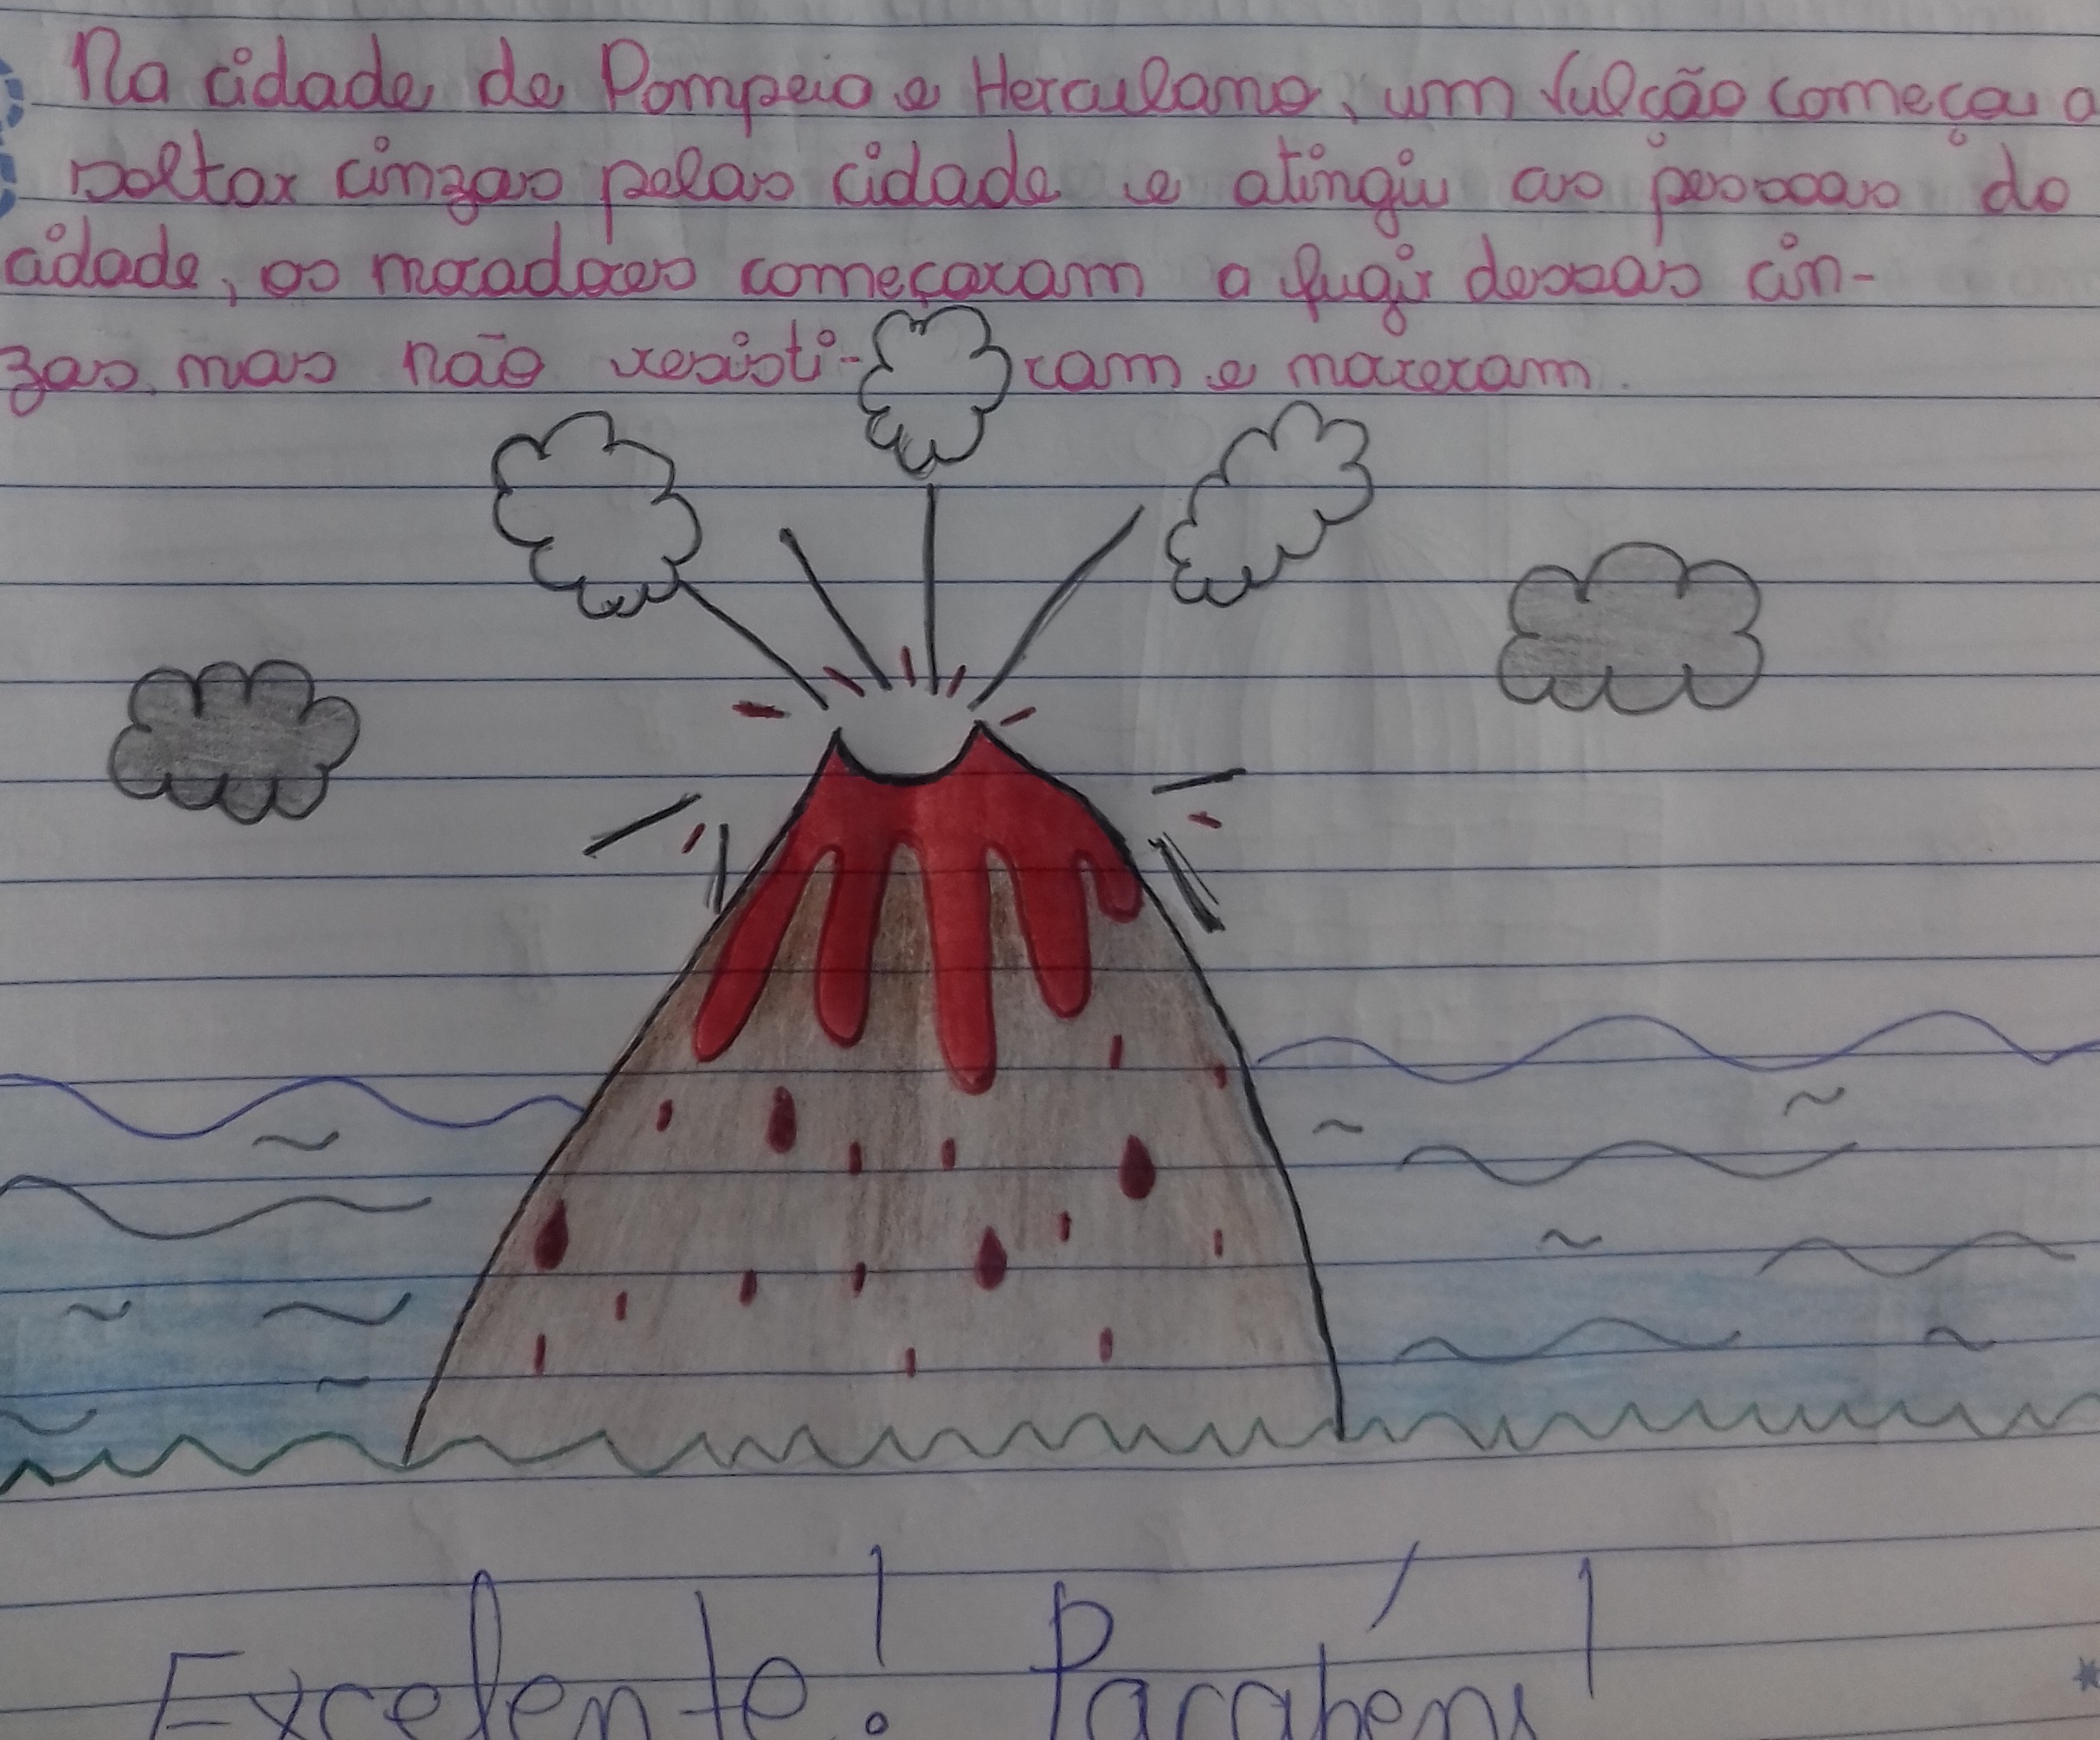 Na cidade de Pompeia e Herculano, um vulcão começou a
soltar cinzas pelas cidade e atingiu as pessoas da
cidade, os moradores começaram a fugir dessas cin-
zas, mas não resisti-ram e morreram.
Excelente! Parabéns!